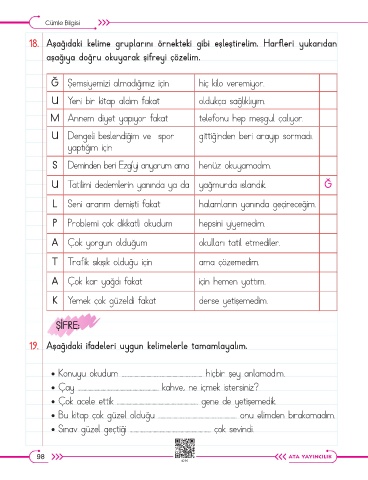 Cümle Bilgisi
18. Aşağıdaki kelime gruplarını örnekteki gibi eşleştirelim. Harfleri yukarıdan
aşağıya doğru okuyarak şifreyi çözelim.
Ğ Şemsiyemizi almadığımız için hiç kilo veremiyor.
U Yeni bir kitap aldım fakat oldukça sağlıklıyım.
M Annem diyet yapıyor fakat telefonu hep meşgul çalıyor.
U Dengeli beslendiğim ve spor gittiğinden beri arayıp sormadı.
yaptığım için
S Deminden beri Ezgi'yi arıyorum ama henüz okuyamadım.
U Tatilimi dedemlerin yanında ya da yağmurda ıslandık. Ğ
L Seni ararım demişti fakat halamların yanında geçireceğim.
P Problemi çok dikkatli okudum hepsini yiyemedim.
A Çok yorgun olduğum okulları tatil etmediler.
T Trafik sıkışık olduğu için ama çözemedim.
A Çok kar yağdı fakat için hemen yattım.
K Yemek çok güzeldi fakat derse yetişemedim.
ŞİFRE:
19. Aşağıdaki ifadeleri uygun kelimelerle tamamlayalım.
• Konuyu okudum ........................ hiçbir şey anlamadım.
• Çay ........................ kahve, ne içmek istersiniz?
• Çok acele ettik ........................ gene de yetişemedik.
• Bu kitap çok güzel olduğu ........................ onu elimden bırakamadım.
• Sınav güzel geçtiği ........................ çok sevindi.
98
ATA YAYINCILIK